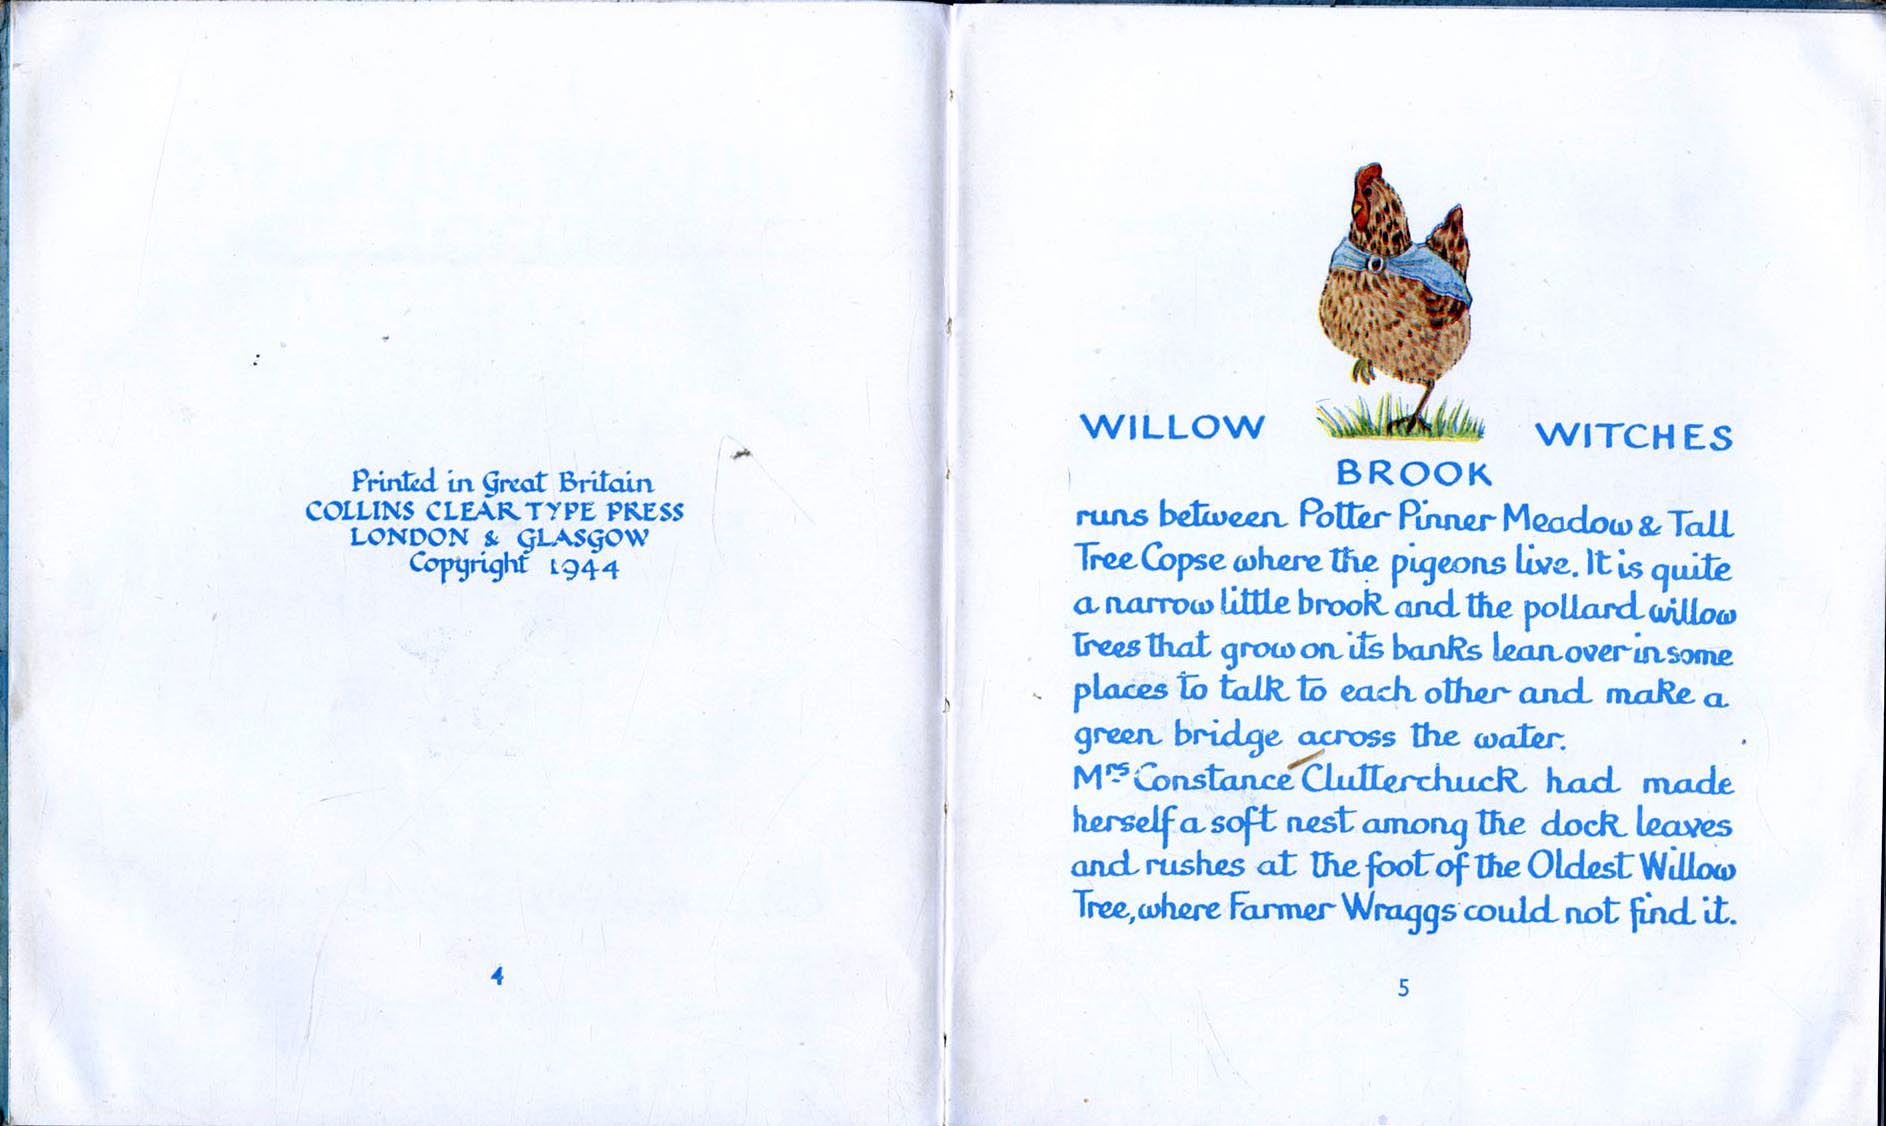 Printed in Great Britain
COLLINS CLEAR TYPE PRESS
LONDON & GLASGOW
Copyright 1944
4
WILLOW WITCHES
BROOK
runs between Potter Pinner Meadow & Tall
Tree Copse where the pigeons live. It is quite
a narrow little brook and the pollard willow
trees that grow on its banks lean over in some
places to talk to each other and make a
green bridge across the water.
Mrs Constance Clutterchuck had made
herself a soft nest among the dock leaves
and rushes at the foot of the Oldest Willow
Tree, where Farmer Wraggs could not find it.
5